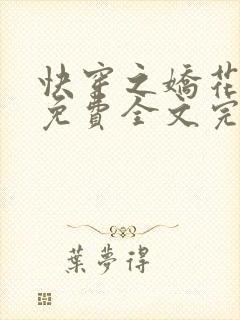 快穿之嬌花
免費全文完
葉夢得